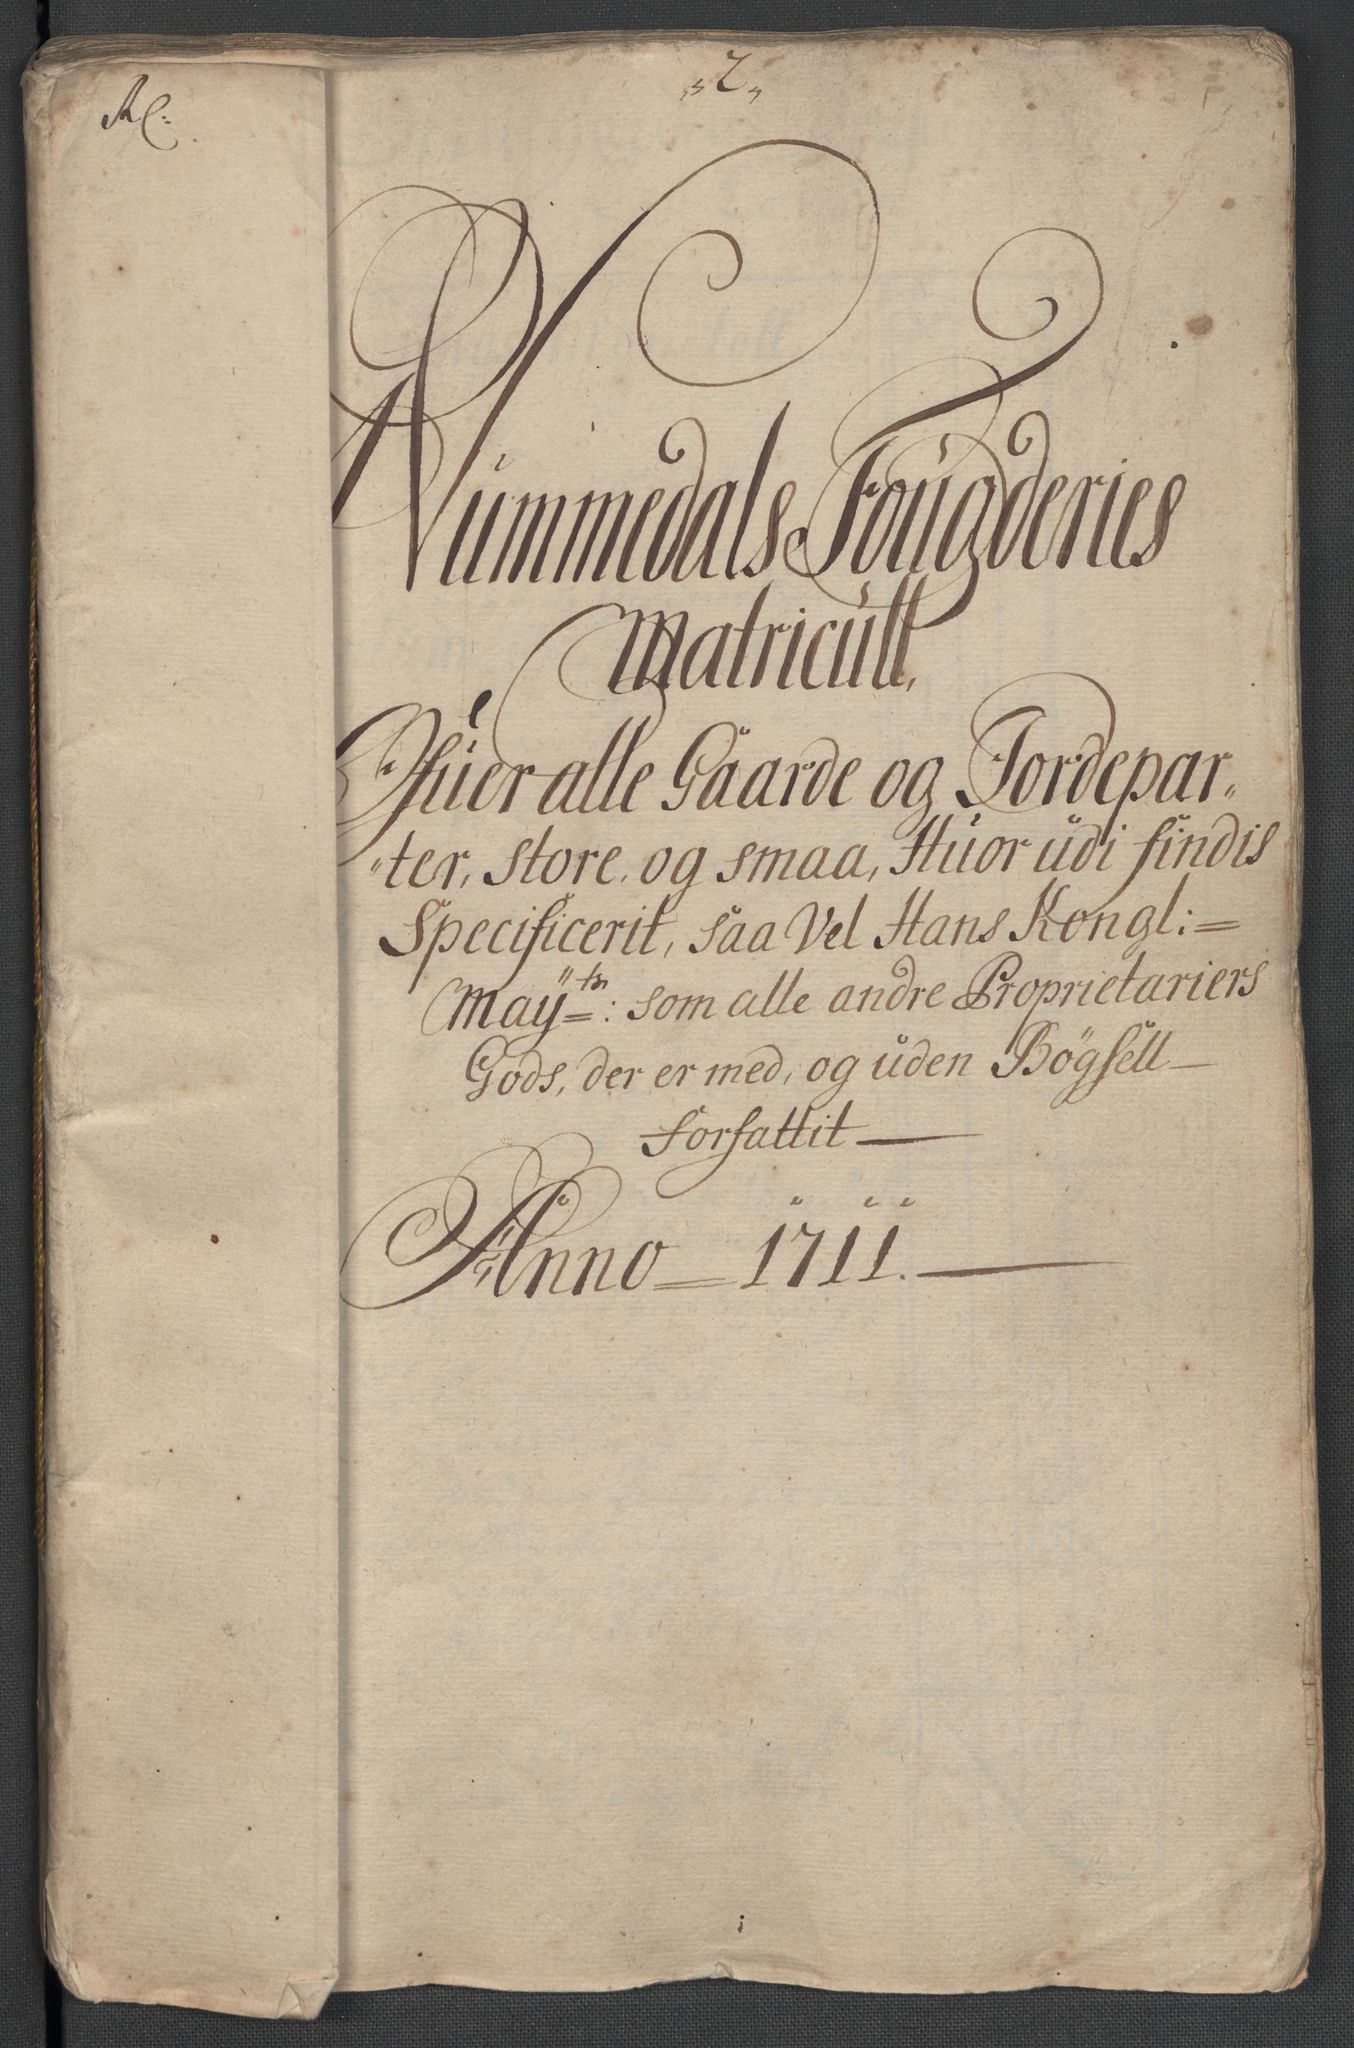 „2„
Nummedals Fougderies
Matricull,
Ofuer alle Gaarde og Jordepar„
„ter, store, og smaa, Huor udi findis
Specificerit, saa Vel Hans Kongl:=
Mayᵗˢ: som alle andre Proprietariers
Gods, der er med, og uden Bøgsell—
forfattit—
Anno = 1711.—